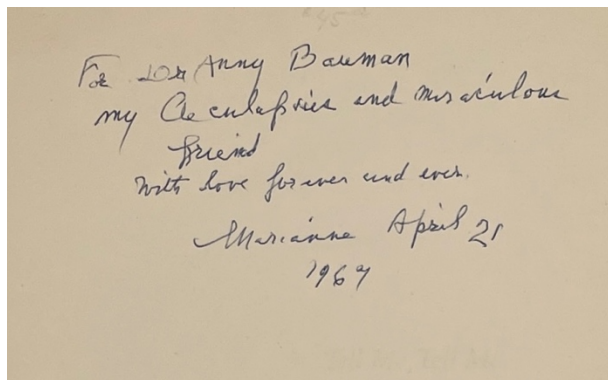 For Dr Anny Bauman
my Aesculapius and miraculous
friend
with love forever and ever.
Marianne April 21
1967